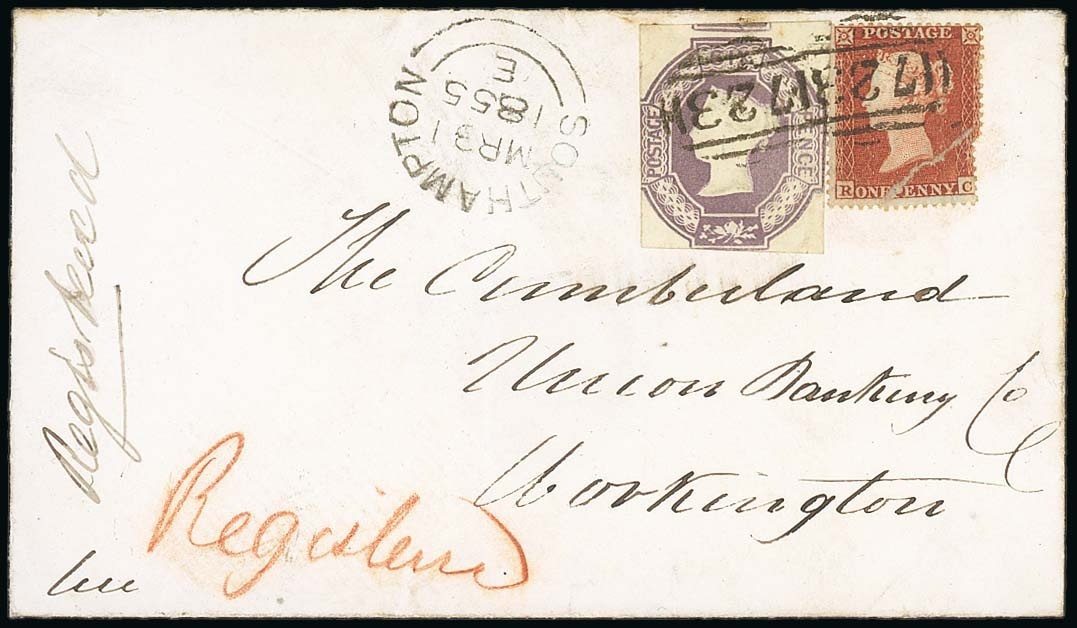 SOUTHAMPTON
E
1855
MR31
POSTAGE
PENCE
723
723
POSTAGE
R ONE PENNY C
The Cumberland
Union Banking Co
Workington
Registered
Registered